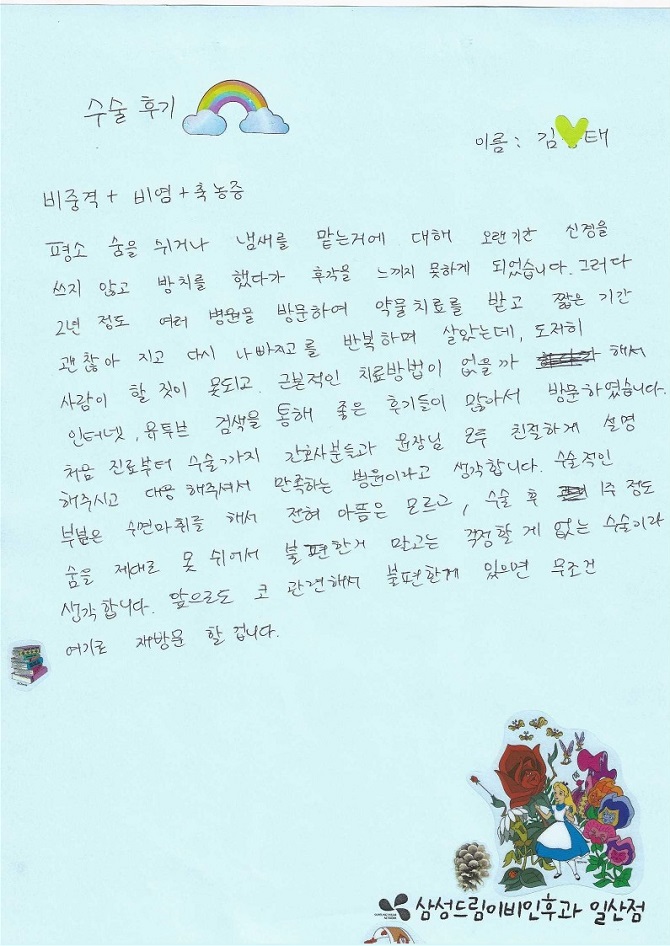 수술 후기
이름 : 김 태
비중격 + 비염 + 축농증
평소 숨을 쉬거나 냄새를 맡는거에 대해 오랜기간 신경을
쓰지 않고 방치를 했다가 후각을 느끼지 못하게 되었습니다. 그러다
2년 정도 여러 병원을 방문하여 약물치료를 받고 짧은 기간
괜찮아 지고 다시 나빠지고를 반복하며 살았는데, 도저히
사람이 할 짓이 못되고 근본적인 치료방법이 없을까 해서
인터넷, 유투브 검색을 통해 좋은 후기들이 많아서 방문하였습니다.
처음 진료부터 수술까지 간호사분들과 원장님 모두 친절하게 설명
해주시고 대응해주셔서 만족하는 병원이라고 생각합니다. 수술적인
부분은 수면마취를 해서 전혀 아픔은 모르고, 수술 후 1주 정도
숨을 제대로 못 쉬어서 불편한거 말고는 걱정할 게 없는 수술이라
생각합니다. 앞으로도 코 관련해서 불편한게 있으면 무조건
여기로 재방문 할 겁니다.
삼성드림이비인후과 일산점